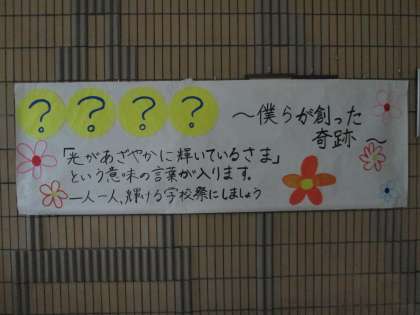 ? ? ? ?
～僕らが創った
奇跡～
「光があざやかに輝いているさま」
という意味の言葉が入ります。
一人一人、輝ける学校祭にしましょう